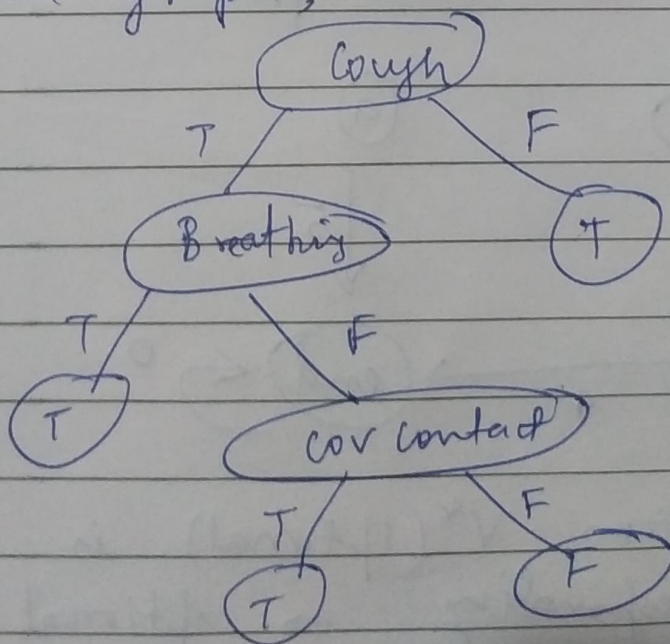 Cough
T F
Breathing T
T F
T cov contact
T F
T F